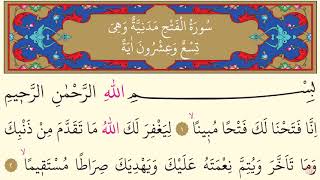 سُورَةُ الْفَتْحِ مَدَنِيَّةٌ وَهِيَ
تِسْعٌ وَعِشْرُونَ اٰيَةً
بِسْمِ اللّٰهِ الرَّحْمٰنِ الرَّحِيمِ
اِنَّا فَتَحْنَا لَكَ فَتْحًا مُبِينًاۙ ﴿١﴾ لِيَغْفِرَ لَكَ اللّٰهُ مَا تَقَدَّمَ مِنْ ذَنْبِكَ
وَمَا تَاَخَّرَ وَيُتِمَّ نِعْمَتَهُ عَلَيْكَ وَيَهْدِيَكَ صِرَاطًا مُسْتَقِيمًاۙ ﴿٢﴾